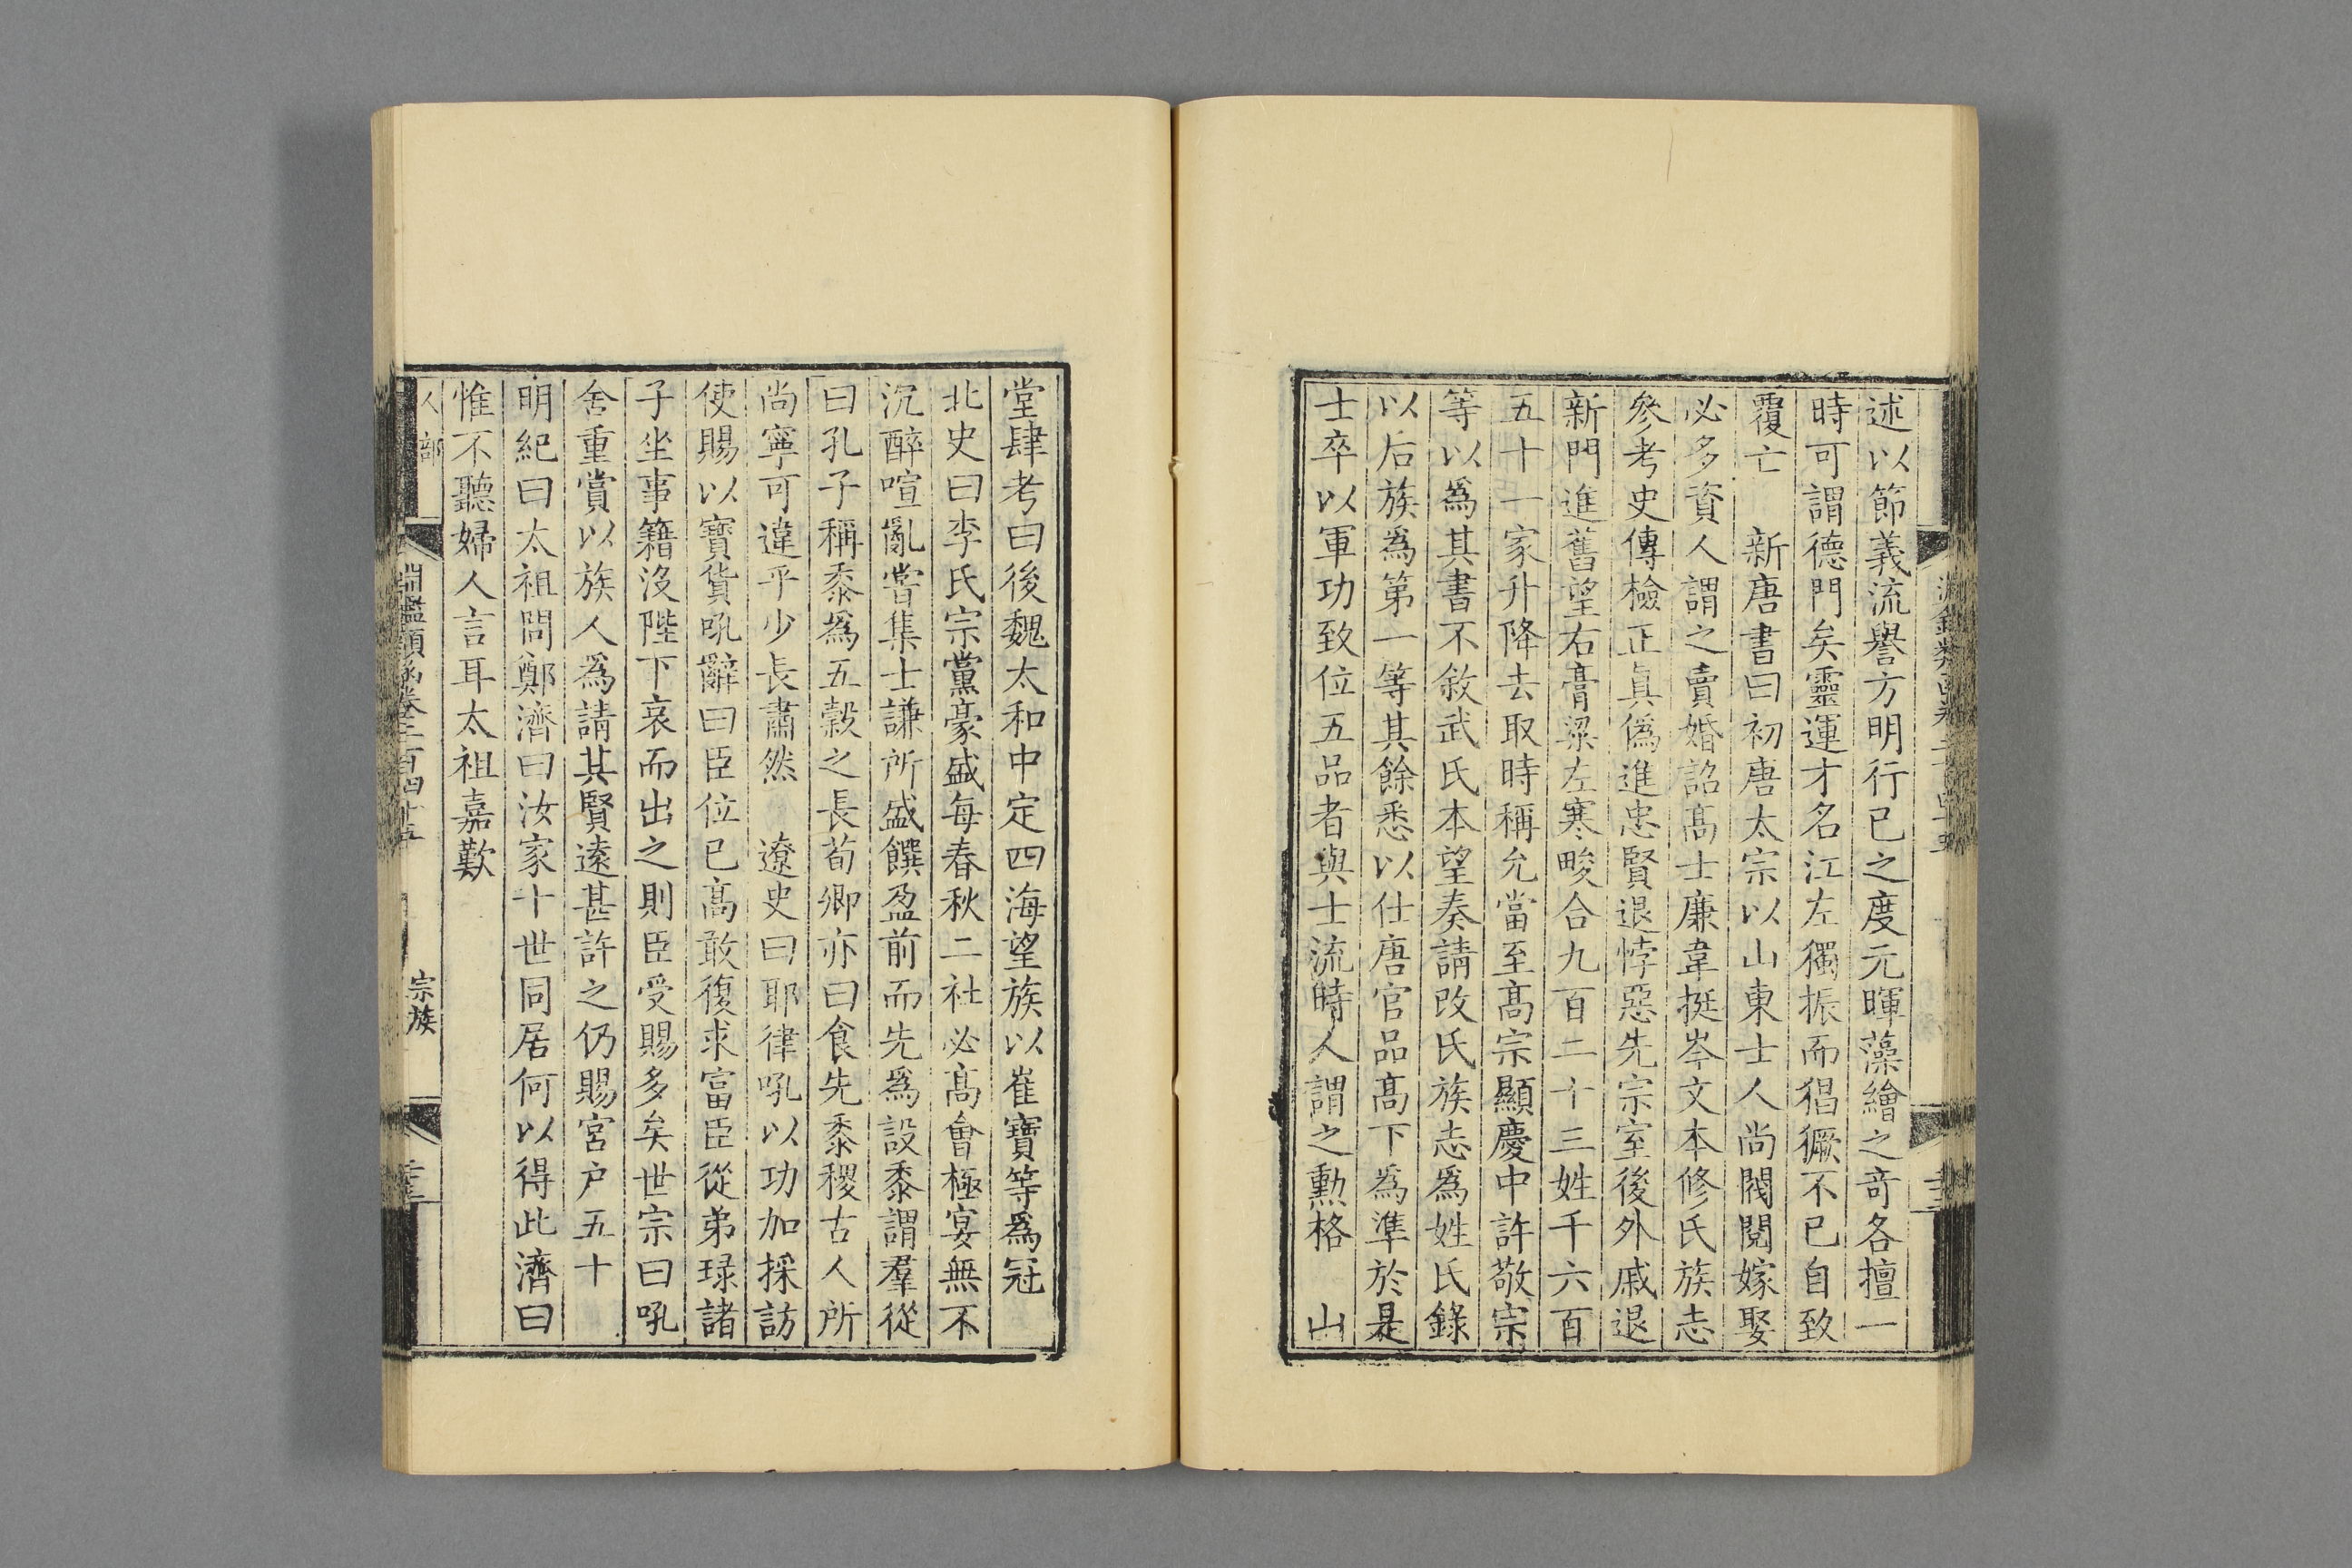 述以節義流譽方明行已之度元暉藻繪之奇各擅一
時可謂德門矣靈運才名江左獨振而猖獗不已自致
覆亡　新唐書曰初唐太宗以山東士人尚閥閱嫁娶
必多資人謂之賣婚詔髙士廉韋挺岑文本修氏族志
參考史傳檢正眞僞進忠賢退悖惡先宗室後外戚退
新門進舊望右膏粱左寒畯合九百二十三姓千六百
五十一家升降去取時稱允當至髙宗顯慶中許敬宗
等以爲其書不敘武氏本望奏請改氏族志爲姓氏錄
以后族爲第一等其餘悉以仕唐官品髙下爲準於是
士卒以軍功致位五品者與士流時人謂之勲格　山
堂肆考曰後魏太和中定四海望族以崔寶等爲冠
北史曰李氏宗黨豪盛每春秋二社必髙會極宴無不
沉醉喧亂嘗集士謙所盛饌盈前而先爲設黍謂羣從
曰孔子稱黍爲五榖之長荀卿亦曰食先黍稷古人所
尚寧可違乎少長肅然　遼史曰耶律吼以功加採訪
使賜以寶貨吼辭曰臣位已髙敢復求富臣從弟㻽諸
子坐事籍沒陛下哀而出之則臣受賜多矣世宗曰吼
舍重賞以族人爲請其賢遠甚許之仍賜宮户五十
明紀曰太祖問鄭濟曰汝家十世同居何以得此濟曰
惟不聽婦人言耳太祖嘉歎
人部
淵鑑類函卷二百四十五
宗族